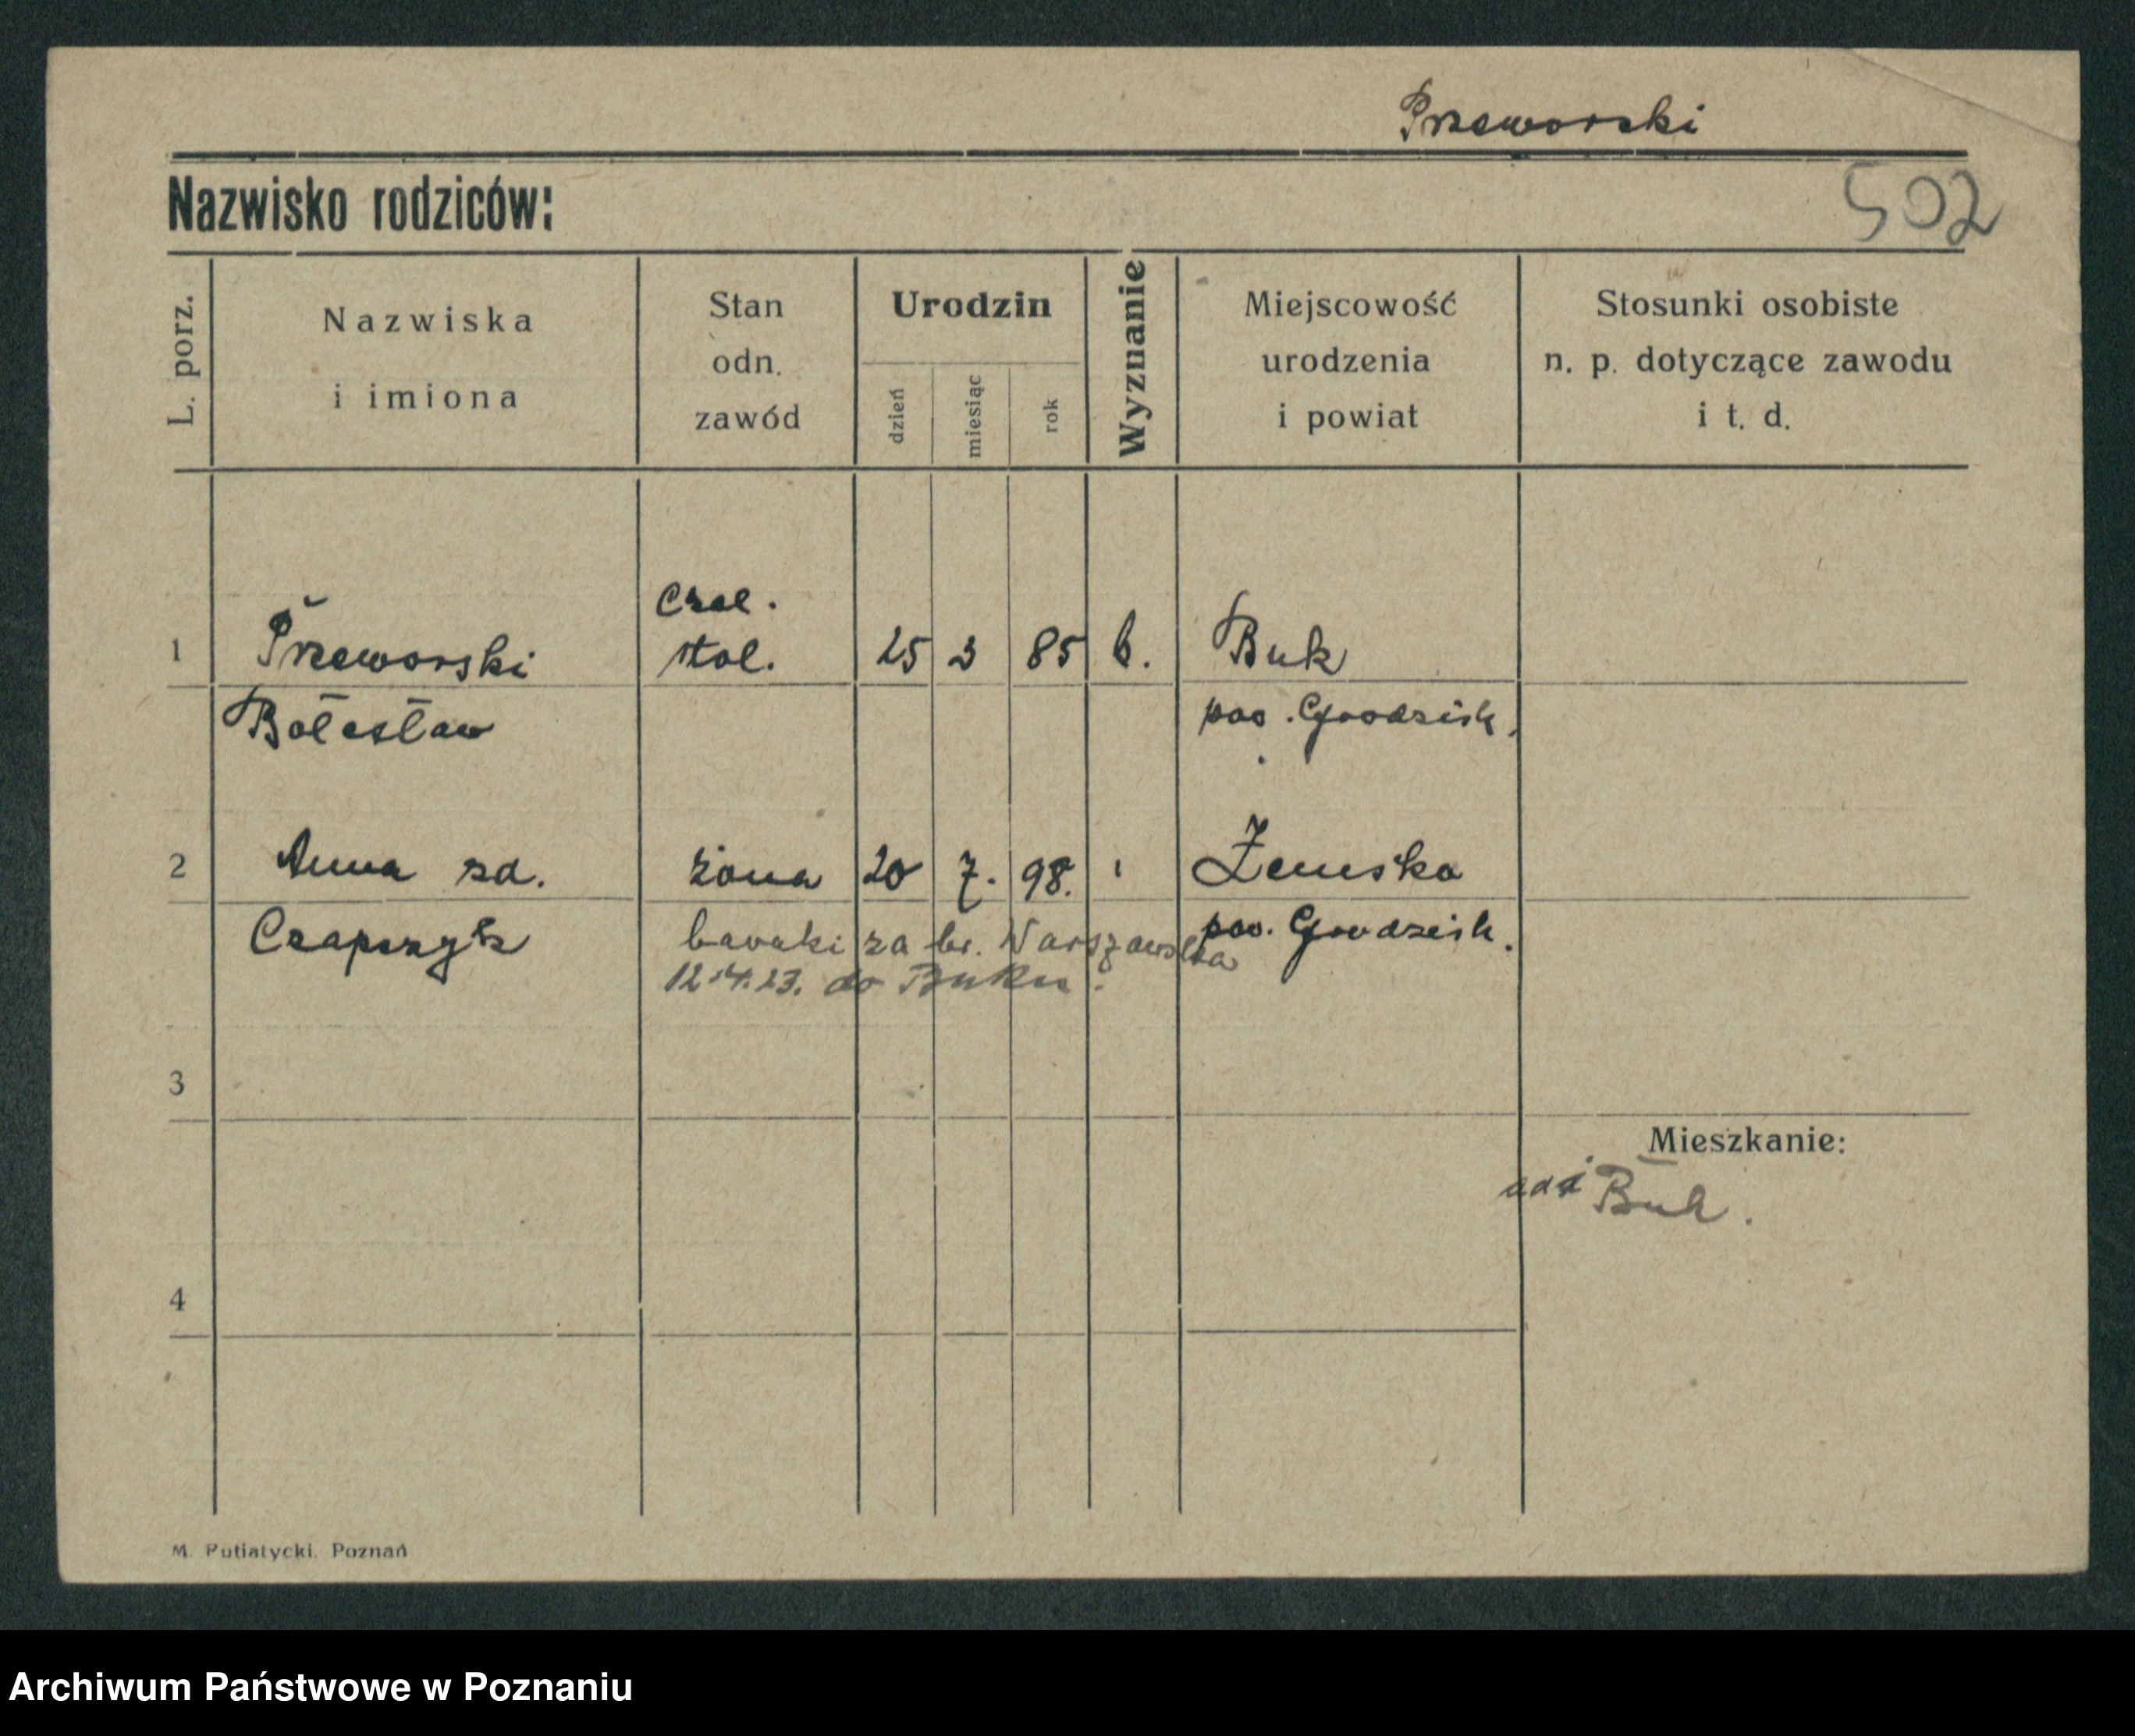 Przeworski
Nazwisko rodziców:
502
L. porz.
Nazwiska
i imiona
Stan
odn.
zawód
Urodzin
dzień
miesiąc
rok
Wyznanie
Miejscowość
urodzenia
i powiat
Stosunki osobiste
n. p. dotyczące zawodu
i t. d.
czel.
1 Przeworski stol. 25 3 85 Buk
Bolesław pow. Grodzisk
2 Anna zd. żona 20 7. 98. Zemsko
Czapczyk pow. Grodzisk.
baraki za br. Warszawska
12.4.23. do Buku.
3
Mieszkanie:
Buk.
4
M. Putiatycki. Poznań
Archiwum Państwowe w Poznaniu